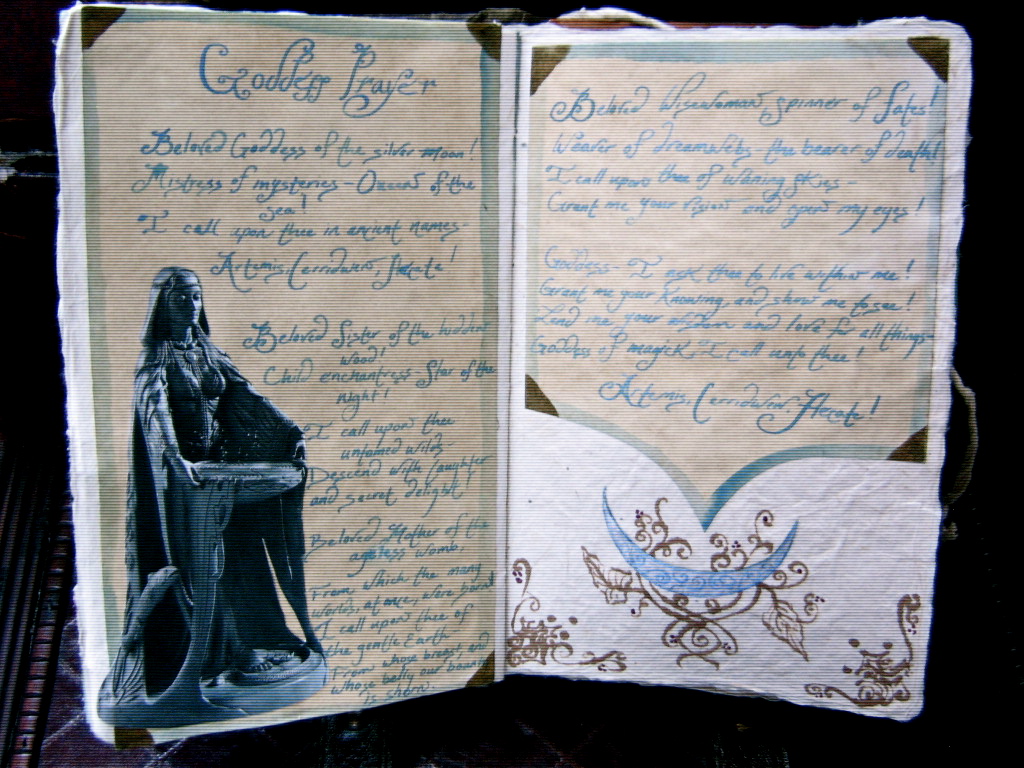 Goddess Prayer
Beloved Goddess of the silver moon!
Mistress of mysteries - Queen of the
Sea!
I call upon thee in ancient names-
Artemis, Cerridwen, Hecate!
Beloved Sister of the hidden
wood!
Child enchantress - Star of the
night!
I call upon thee
untamed wilds-
Descend with laughter
and secret, delight!
Beloved Mother of the
ageless womb,
From, which the many
worlds, at once, were born!
I call upon thee of
the gentle Earth-
From whose breast, and
whose belly our bounty
is shorn.
Beloved Wisewoman, spinner of Fates!
Weaver of dreamwebs- the bearer of death!
I call upon thee of waning skies-
Grant me your vision and open my eyes!
Goddess- I ask thee to live within me!
Grant me your knowing, and show me to see!
Lend me, your wisdom and love for all things-
Goddess of magick, I call unto thee!
Artemis, Cerridwen, Hecate!